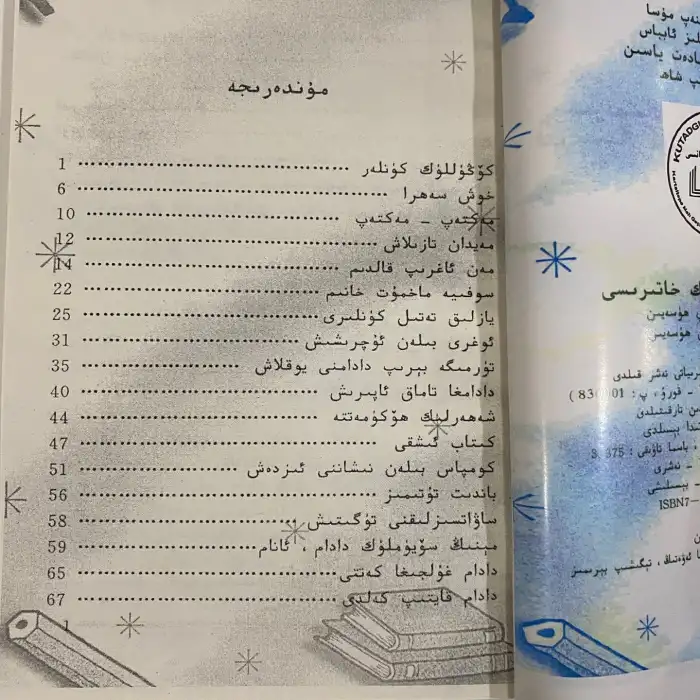 مۇندەرىجە
كۆڭۈللۈك كۈنلەر ........ 1
خوش سەھرا ........ 6
مەكتەپ – مەكتەپ ........ 10
مەيدان تازىلاش ........ 12
مەن ئاغرىپ قالدىم ........ 14
سوفىيە ماخمۇت خانىم ........ 22
يازلىق تەتىل كۈنلىرى ........ 25
ئوغرى بىلەن ئۇچرىشىش ........ 31
تۈرمىگە بېرىپ دادامنى يوقلاش ........ 35
دادامغا تاماق ئاپىرىش ........ 40
شەھەرلىك ھۆكۈمەتتە ........ 44
كىتاب ئىشقى ........ 47
كومپاس بىلەن نىشاننى ئىزدەش ........ 51
باندىت تۇتىمىز ........ 56
ساۋاتسىزلىقنى تۈگىتىش ........ 58
مېنىڭ سۆيۈملۈك دادام ، ئانام ........ 59
دادام غۇلجىغا كەتتى ........ 65
دادام قايتىپ كەلدى ........ 67
1
مۇسا
ئابباس
ياسىن
شاھ
KUTADGU
خاتىرىسى
ھۈسەيىن
ھۈسەيىن
نەشر قىلدى
تارقىتىلدى
بېسىلدى
– نەشرى
– بېسىلىشى
ISBN7–
تېگىشىپ بېرىمىز